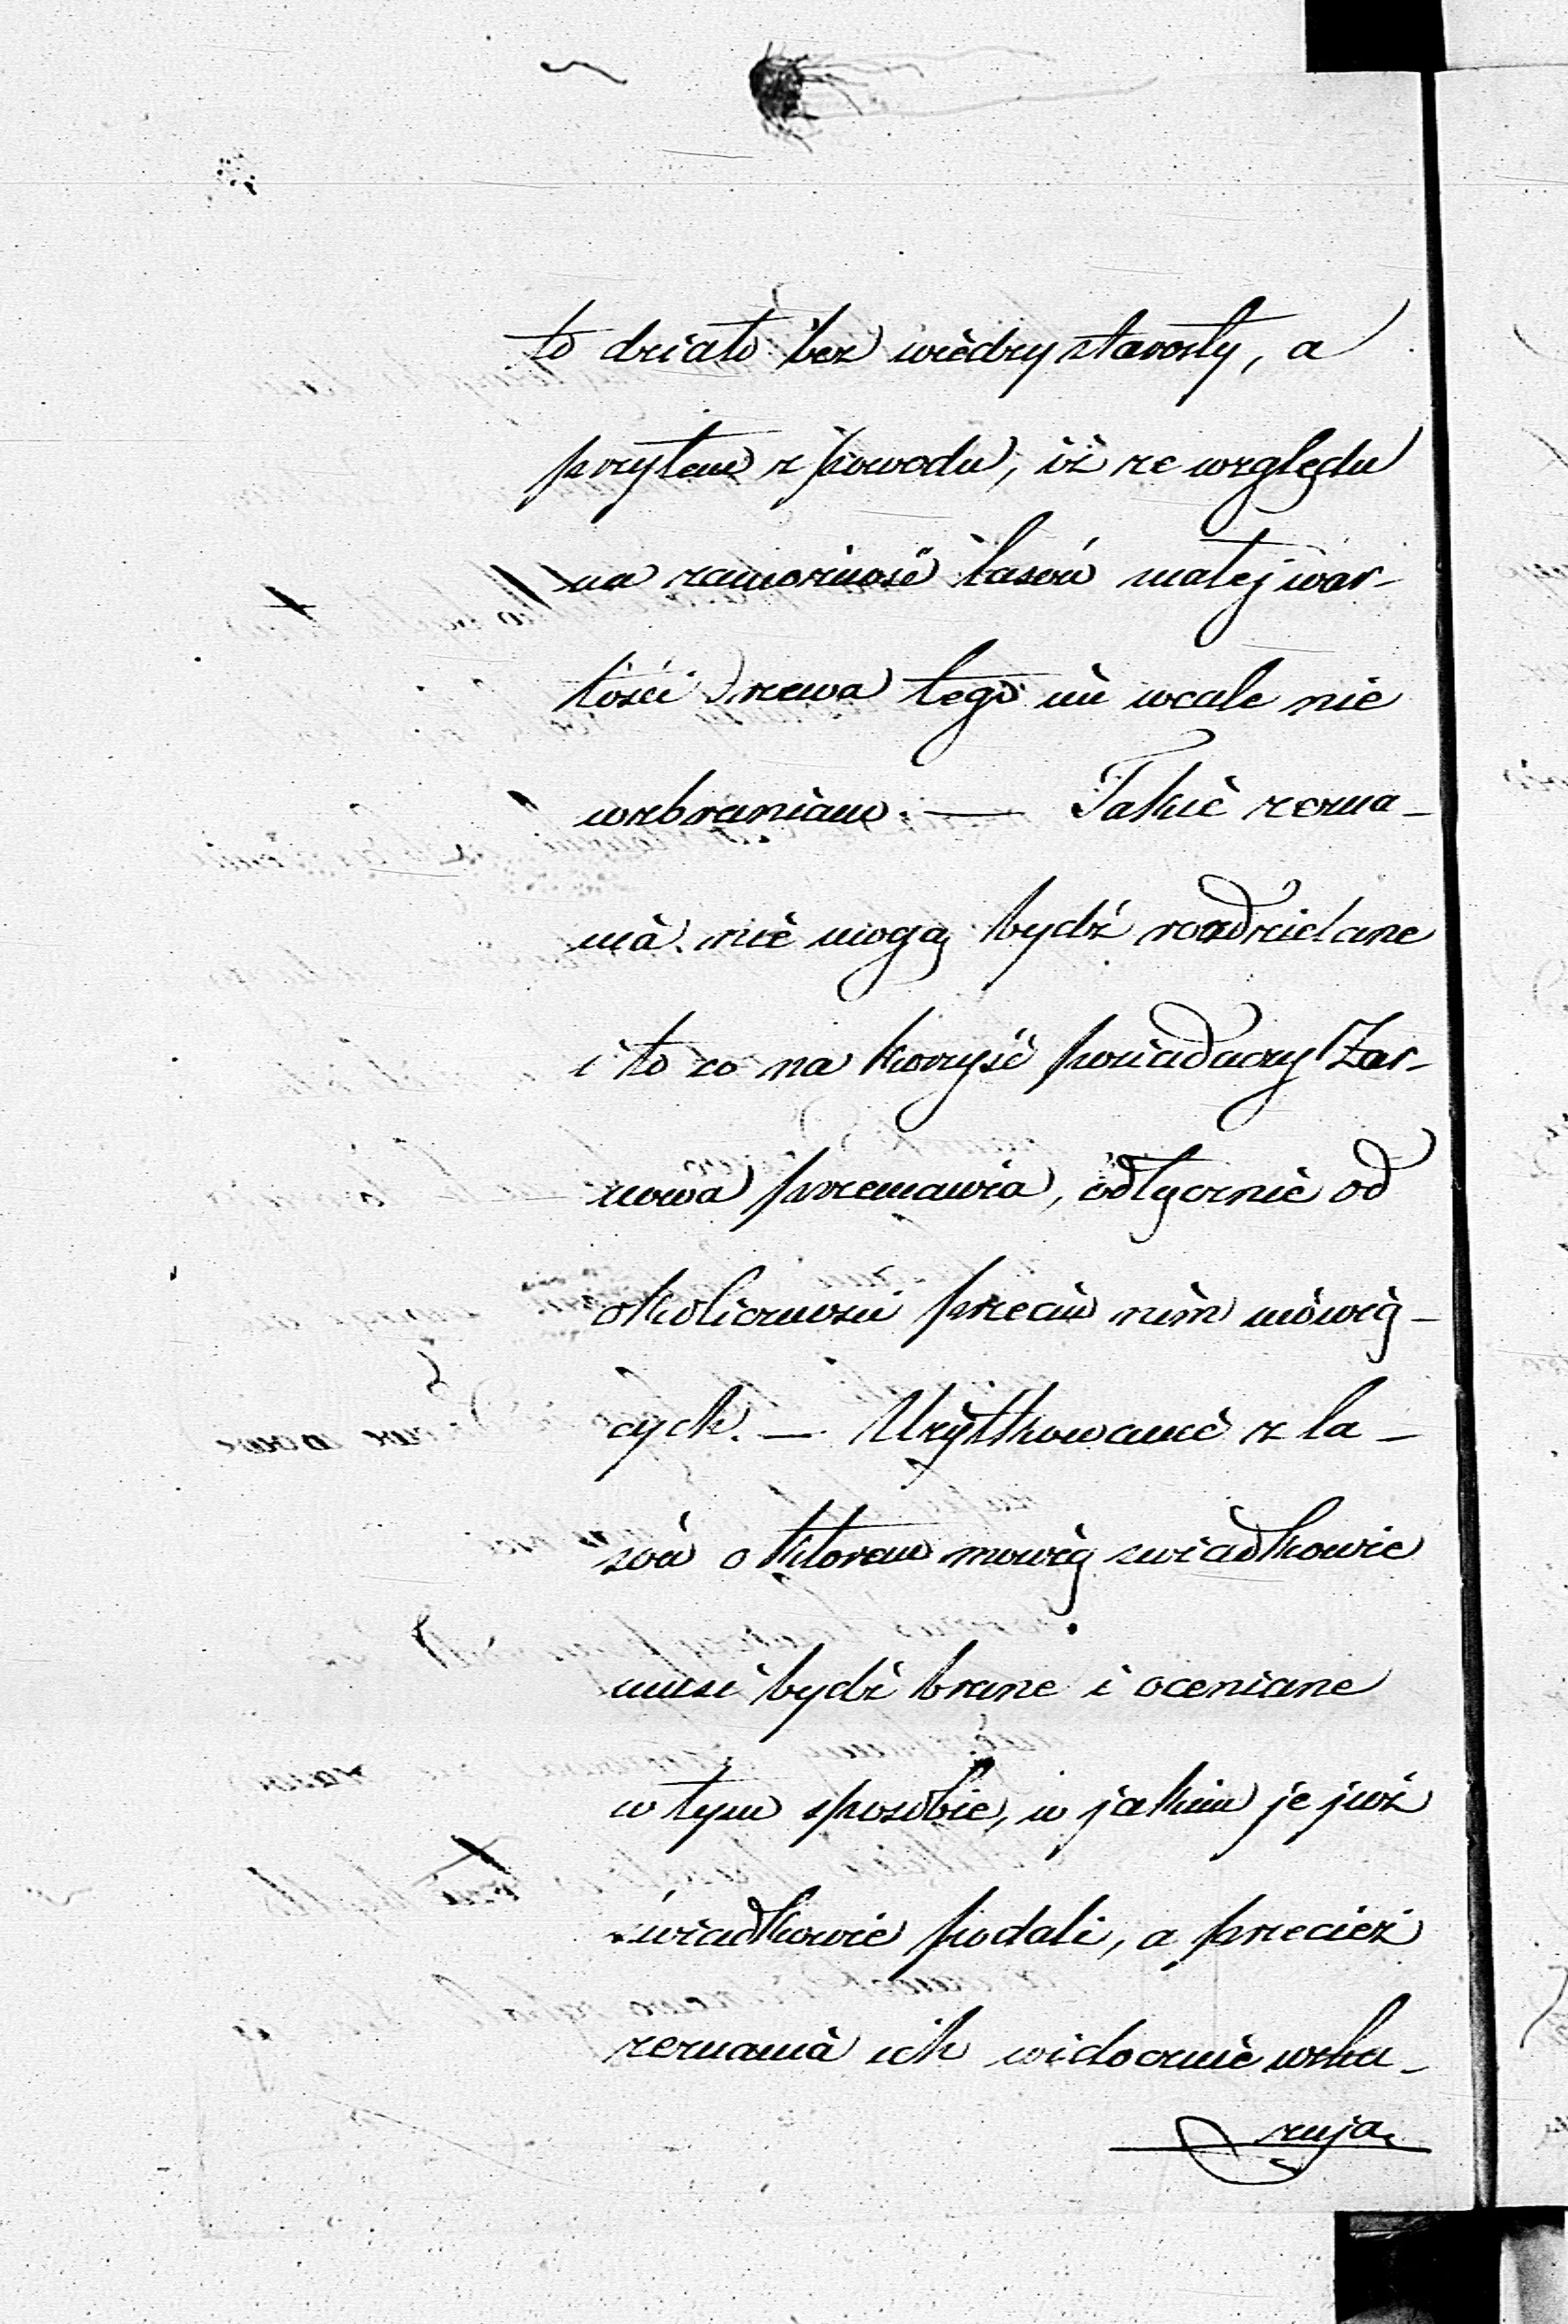 to działo bez wiedzy starosty, a
przytem z powodu, iż ze względu
na zamożność lasów małej war-
tości drzewa tego im wcale nie
wzbraniano. — Takie zezna-
nia nie mogą bydź rozdzielane
i to co na korzyść posiadaczy Żar-
nowa przemawia, odłącznie od
okoliczności przeciw nim mówią-
cych. — Użytkowanie z la-
sów o ktorem mowią swiadkowie
musi bydź brane i oceniane
w tym sposobie, w jakim je już
świadkowie podali, a przecież
zeznania ich widocznie wska-
zują